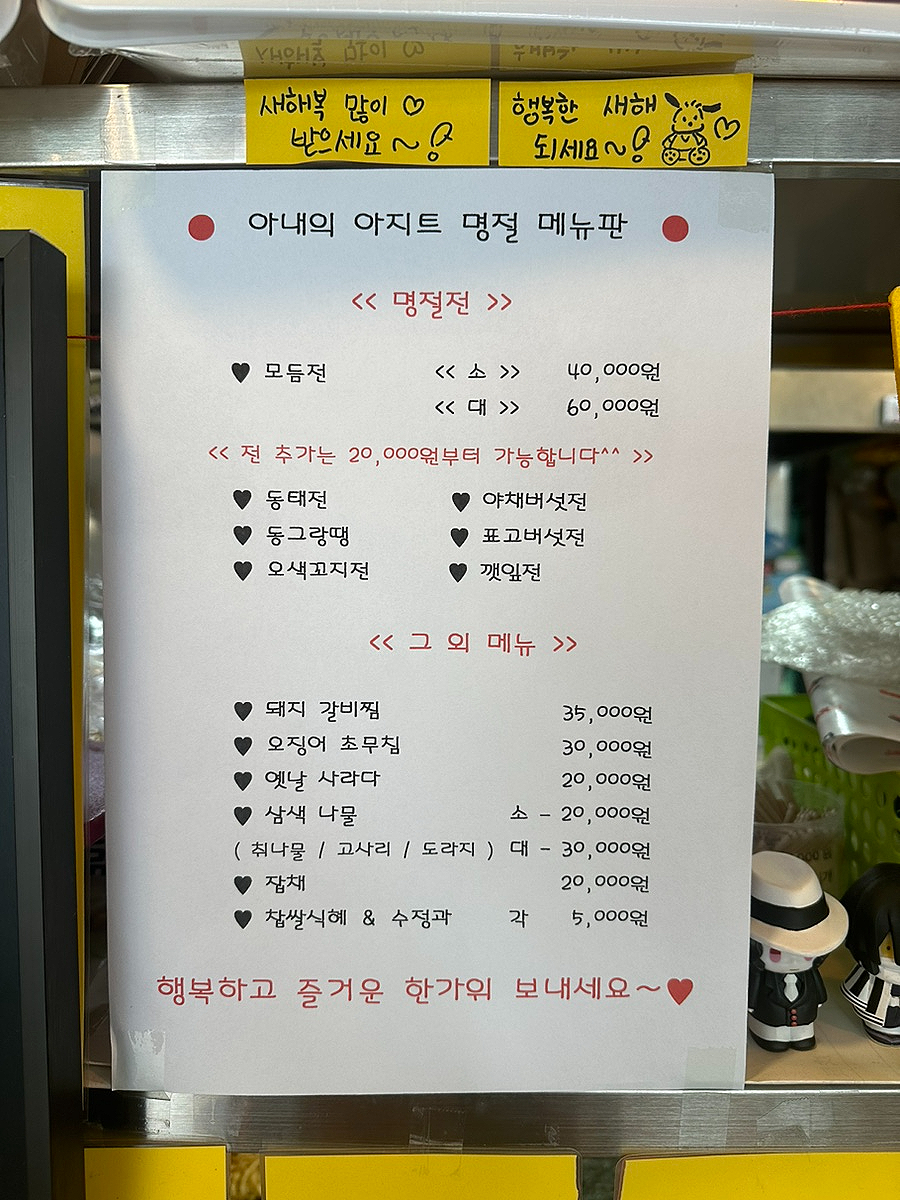 새해복 많이 ♡
받으세요~
행복한 새해
되세요~ ♡
● 아내의 아지트 명절 메뉴판 ●
<< 명절전 >>
♥ 모듬전 << 소 >> 40,000원
<< 대 >> 60,000원
<< 전 추가는 20,000원부터 가능합니다^^ >>
♥ 동태전 ♥ 야채버섯전
♥ 동그랑땡 ♥ 표고버섯전
♥ 오색꼬지전 ♥ 깻잎전
<< 그 외 메뉴 >>
♥ 돼지 갈비찜 35,000원
♥ 오징어 초무침 30,000원
♥ 옛날 사라다 20,000원
♥ 삼색 나물 소 - 20,000원
( 취나물 / 고사리 / 도라지 ) 대 - 30,000원
♥ 잡채 20,000원
♥ 찹쌀식혜 & 수정과 각 5,000원
행복하고 즐거운 한가위 보내세요~♥